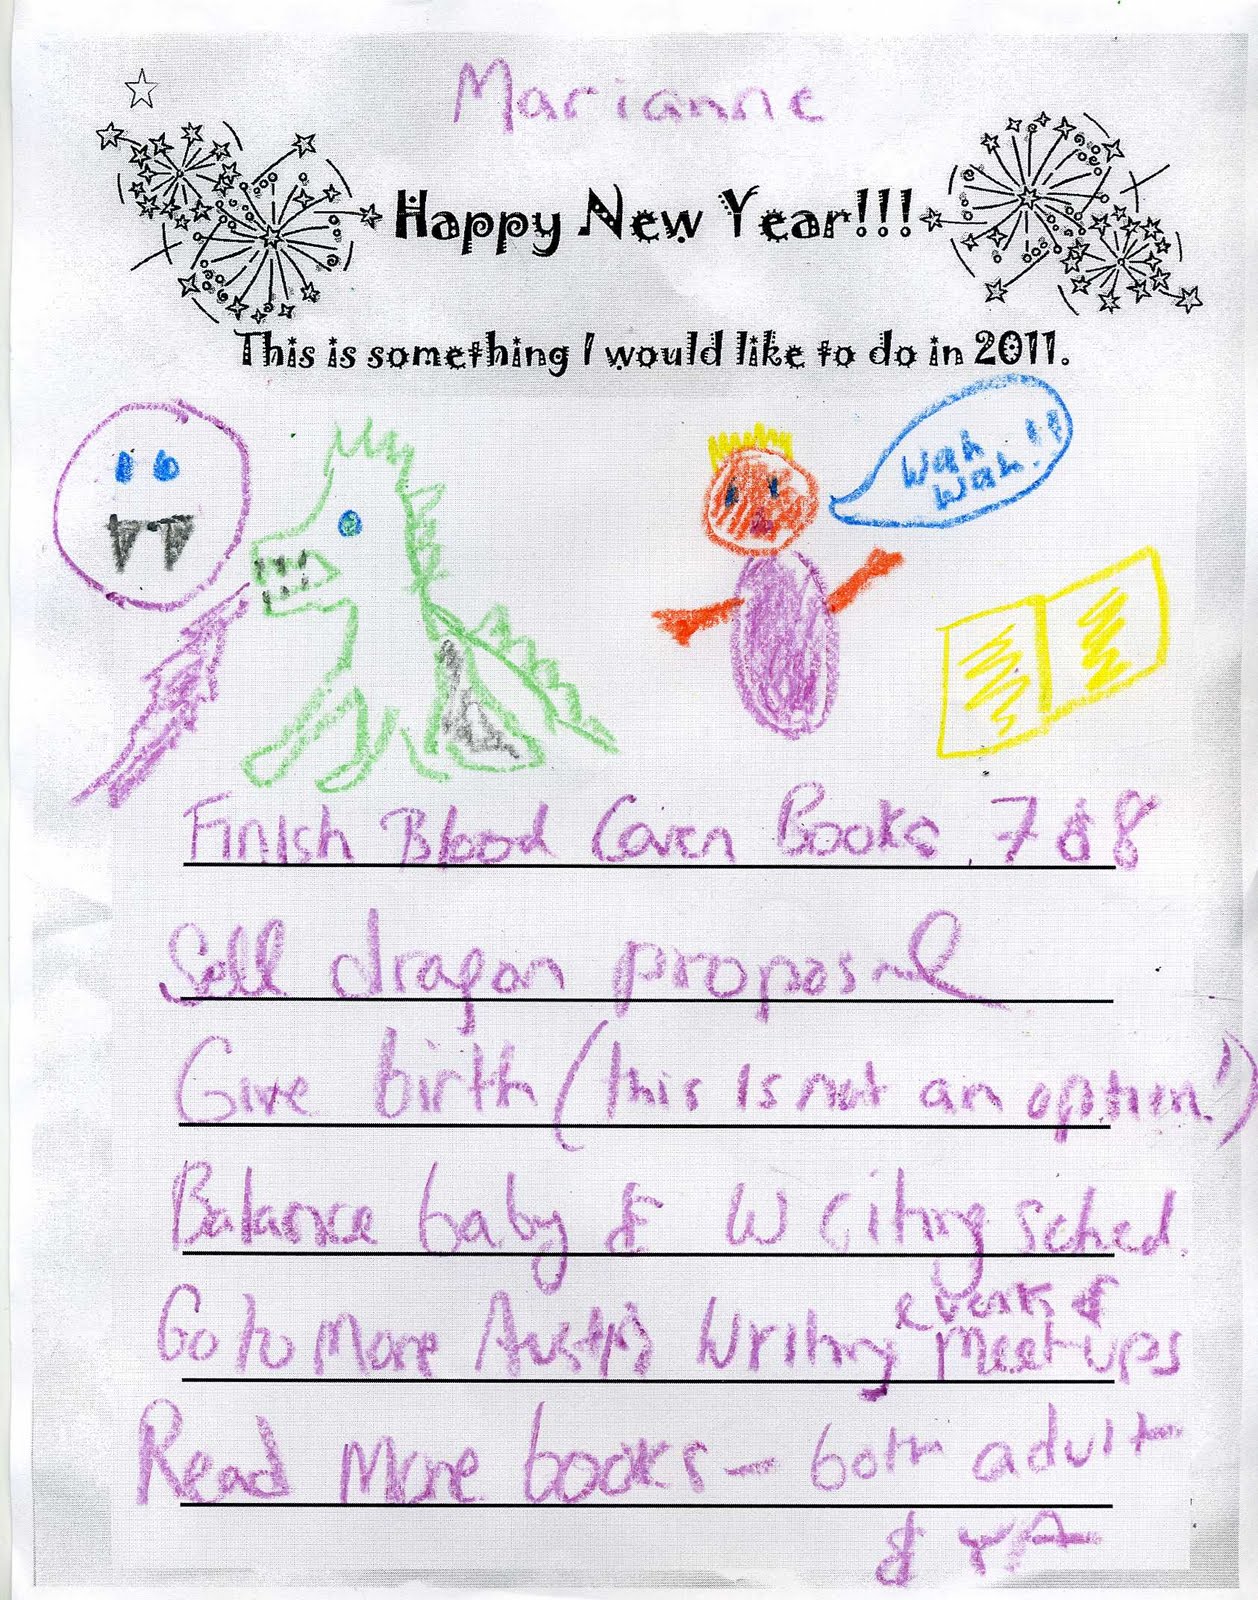 Marianne
Happy New Year!!!
This is something I would like to do in 2011.
Wah
Wah!!
Finish Blood Coven Books 7 & 8
Sell dragon proposal
Give birth (this is not an option!)
Balance baby & writing sched.
Go to More Austin Writing events & Meet-ups
Read More books - both adult
& YA